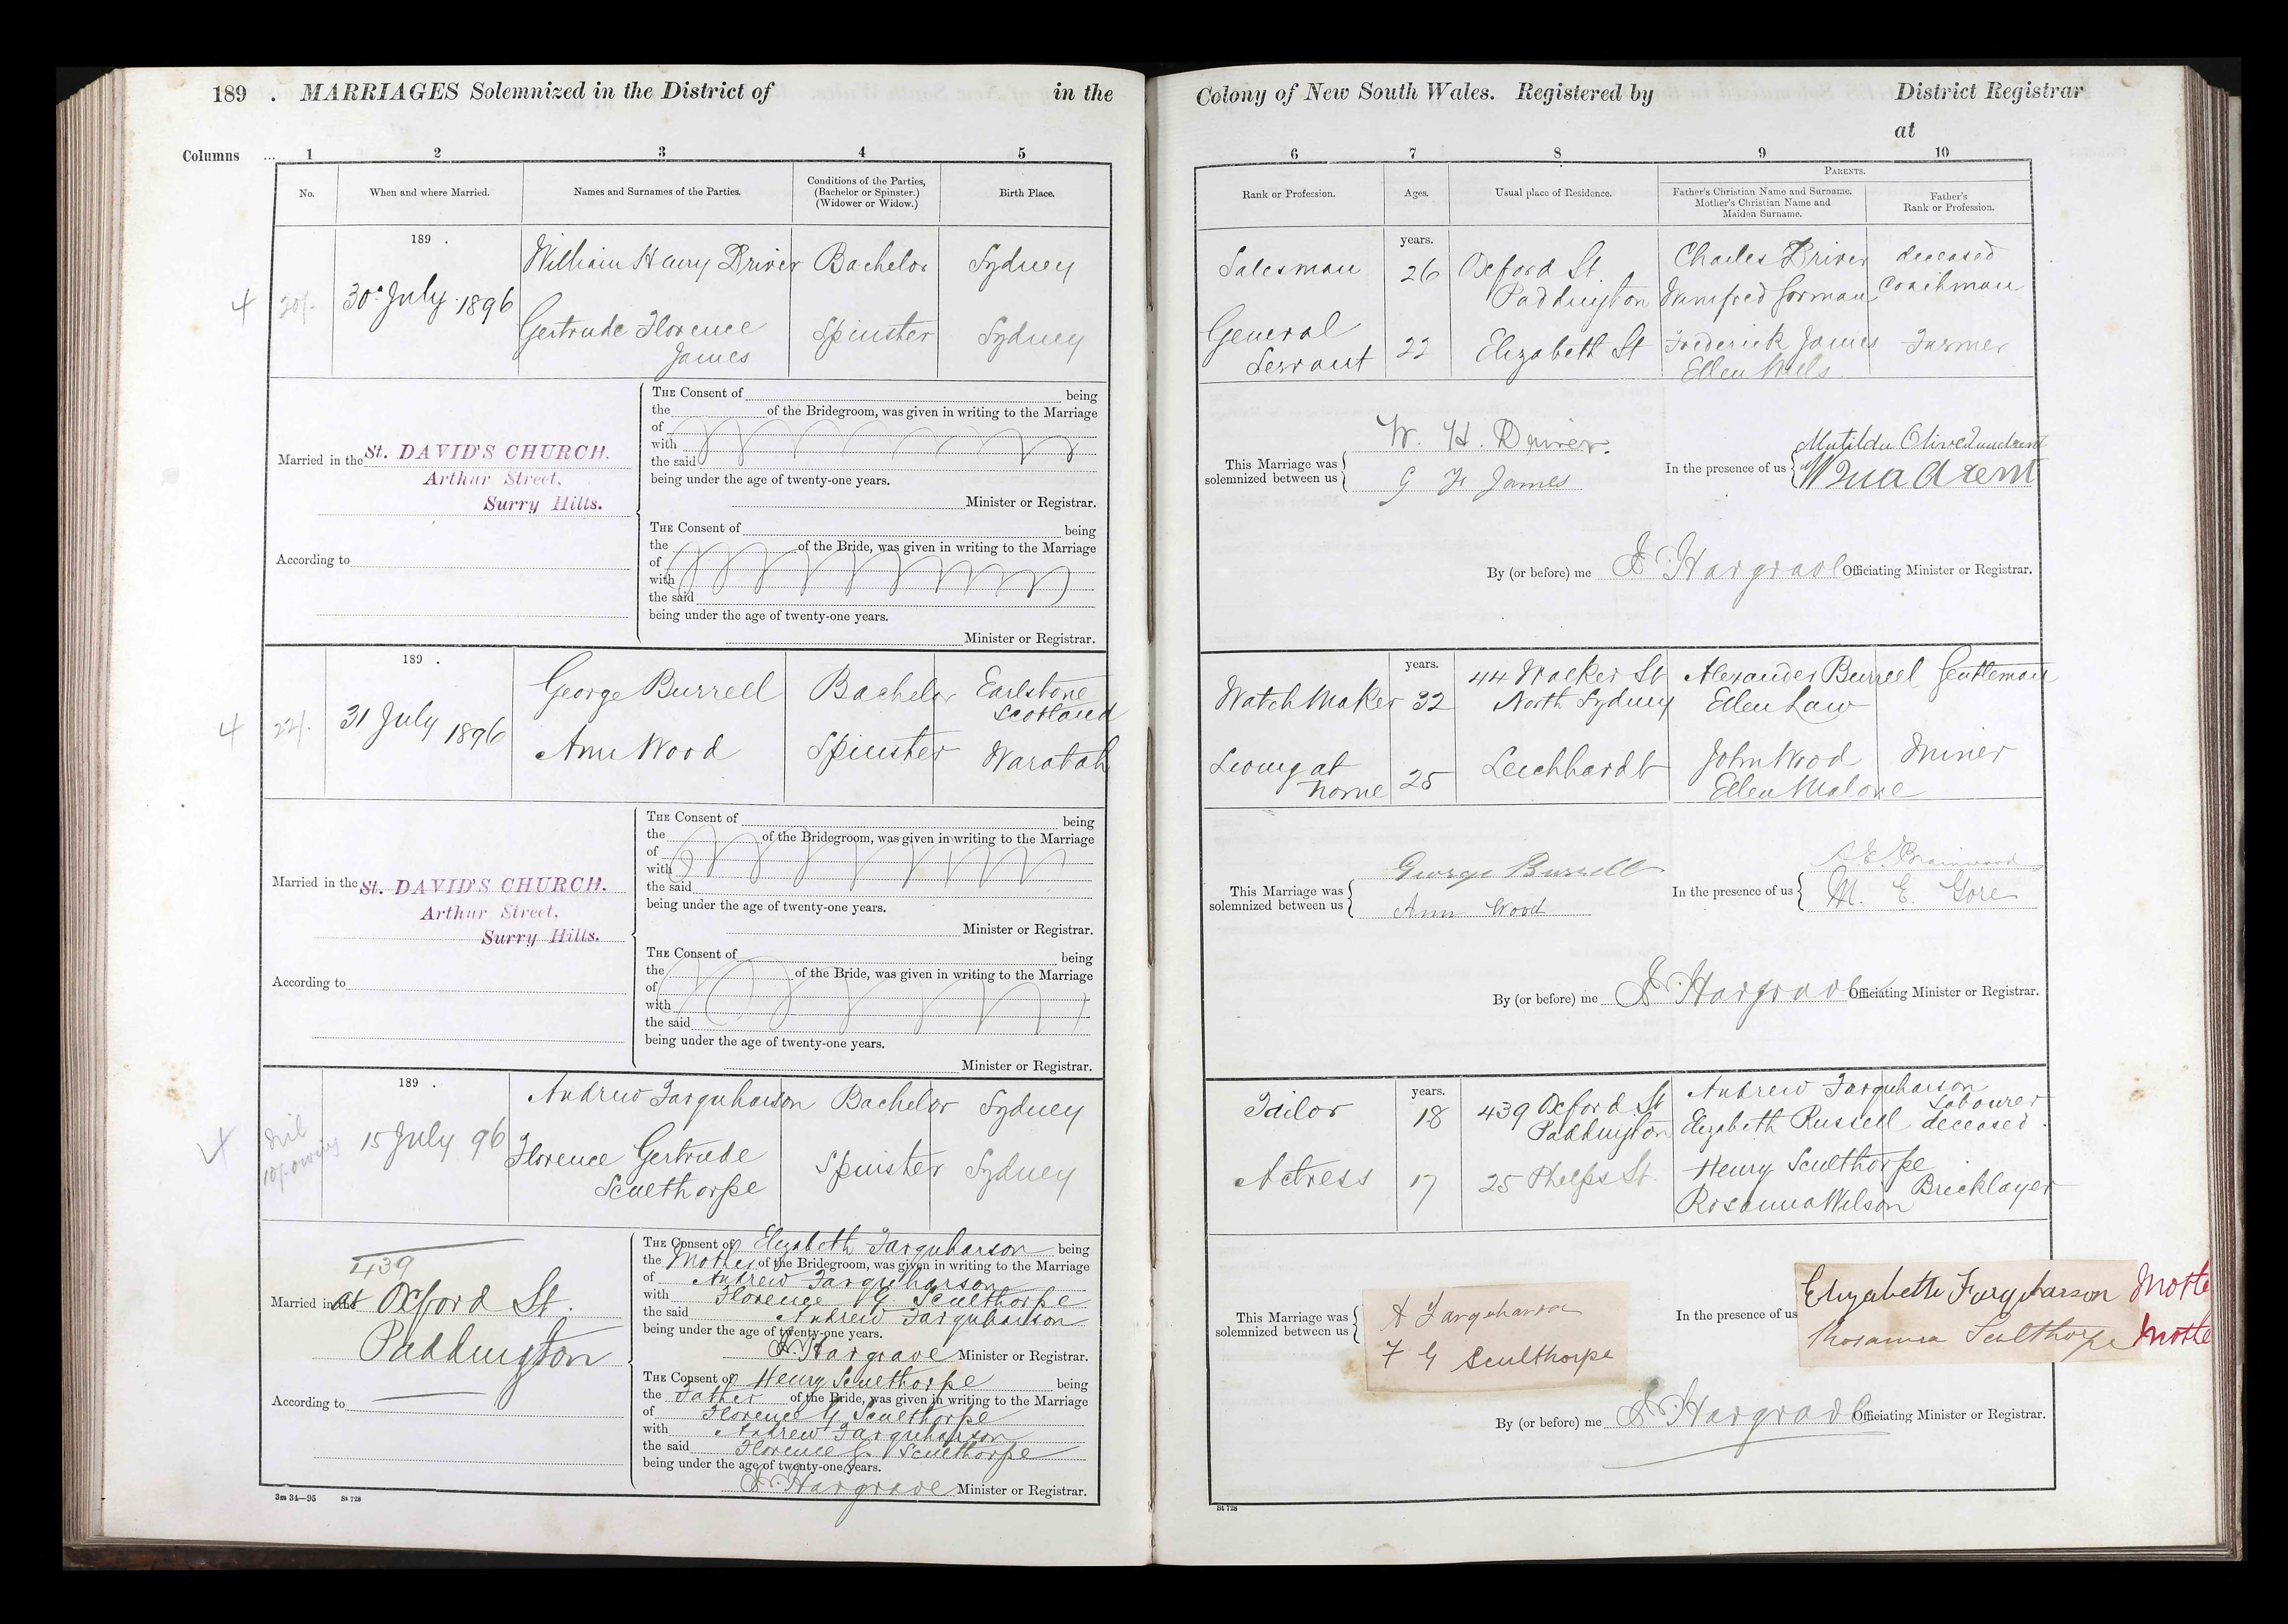 189 . MARRIAGES Solemnized in the District of in the
Columns ... 1 2 3 4 5
No. When and where Married. Names and Surnames of the Parties. Conditions of the Parties, (Bachelor or Spinster.) (Widower or Widow.) Birth Place.
189 .
4 20/- 30th July 1896 William Henry Driver Bachelor Sydney
Gertrude Florence Spinster Sydney
James
THE Consent of being
the of the Bridegroom, was given in writing to the Marriage
of
with
the said
being under the age of twenty-one years.
Minister or Registrar.
Married in the St. DAVID'S CHURCH.
Arthur Street,
Surry Hills.
THE Consent of being
the of the Bride, was given in writing to the Marriage
of
with
the said
being under the age of twenty-one years.
Minister or Registrar.
According to
189 .
4 22/- 31 July 1896 George Burrell Bachelor Earlstone
Scotland
Ann Wood Spinster Waratah
THE Consent of being
the of the Bridegroom, was given in writing to the Marriage
of
with
the said
being under the age of twenty-one years.
Minister or Registrar.
Married in the St. DAVID'S CHURCH.
Arthur Street,
Surry Hills.
THE Consent of being
the of the Bride, was given in writing to the Marriage
of
with
the said
being under the age of twenty-one years.
Minister or Registrar.
According to
189 .
4 Nil
10/- owing
15 July 96 Andrew Farquharson Bachelor Sydney
Florence Gertrude Spinster Sydney
Sculthorpe
THE Consent of Elizabeth Farquharson being
the Mother of the Bridegroom, was given in writing to the Marriage
of Andrew Farquharson
with Florence G. Sculthorpe
the said Andrew Farquharson
being under the age of twenty-one years.
Hargrave Minister or Registrar.
439
Married in the at Oxford St.
Paddington
THE Consent of Henry Sculthorpe being
the Father of the Bride, was given in writing to the Marriage
of Florence G Sculthorpe
with Andrew Farquharson
the said Florence G. Sculthorpe
being under the age of twenty-one years.
Hargrave Minister or Registrar.
According to
3m 34—95 St 728
Colony of New South Wales. Registered by District Registrar
at
6 7 8 9 10
PARENTS.
Rank or Profession. Ages. Usual place of Residence. Father's Christian Name and Surname. Mother's Christian Name and Maiden Surname. Father's Rank or Profession.
years.
Salesman 26 Oxford St Paddington Charles Driver deceased
Winifred Gorman Coachman
General Servant 22 Elizabeth St Frederick James Farmer
Ellen
This Marriage was solemnized between us W. H. Driver.
G F James
In the presence of us Matilda Olive
By (or before) me Hargrave Officiating Minister or Registrar.
years.
Watch Maker 32 44 Walker St North Sydney Alexander Burrell Gentleman
Ellen Law
Living at home 25 Leichhardt John Wood Miner
Ellen Malone
This Marriage was solemnized between us George Burrell
Ann Wood
In the presence of us
M. E. Gore
By (or before) me Hargrave Officiating Minister or Registrar.
years.
Tailor 18 439 Oxford St Paddington Andrew Farquharson Labourer
Elizabeth Russell deceased.
Actress 17 25 Phelps St. Henry Sculthorpe Bricklayer
Rosanna Wilson
This Marriage was solemnized between us A Farquharson
F G Sculthorpe
In the presence of us Elizabeth Farquharson Mothe
Rosanna Sculthorpe Mothe
By (or before) me Hargrave Officiating Minister or Registrar.
St 728